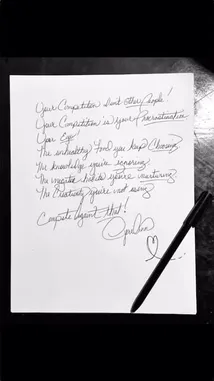 Your Competition Isn't other People!
Your Competition is your Procrastination
Your Ego
The unhealthy Food you keep Choosing
The knowledge you're ignoring
The negative habits you're nurturing
The Creativity you're not using
Compete Against that!